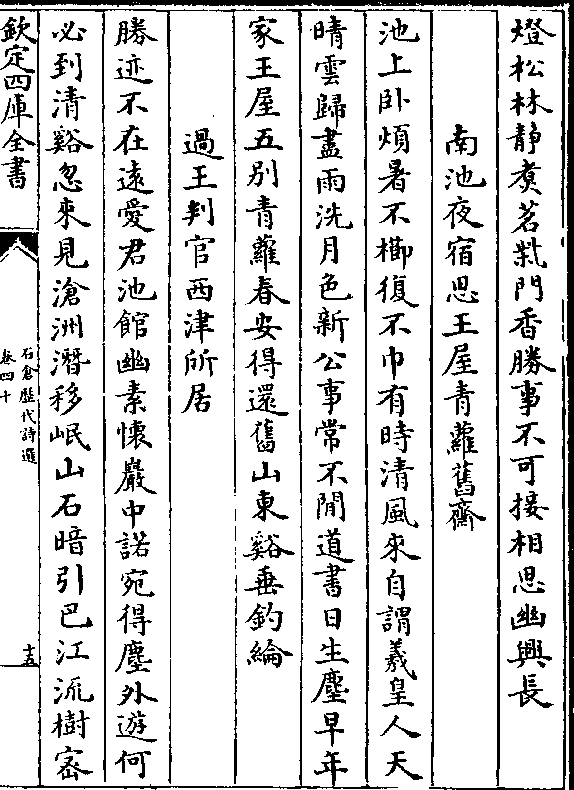 燈松林靜煑茗柴門香勝事不可接相思幽興長
南池夜宿思王屋青蘿舊齋
池上卧煩暑不櫛復不巾有時清風來自謂羲皇人天
晴雲歸盡雨洗月色新公事常不閒道書日生塵早年
家王屋五别青蘿春安得還舊山東谿垂釣綸
過王判官西津所居
勝迹不在遠愛君池館幽素懷巖中諾宛得塵外遊何
必到清谿忽來見滄洲潛移岷山石暗引巴江流樹宻
欽定四庫全書
石倉歷代詩選
卷四十
十五